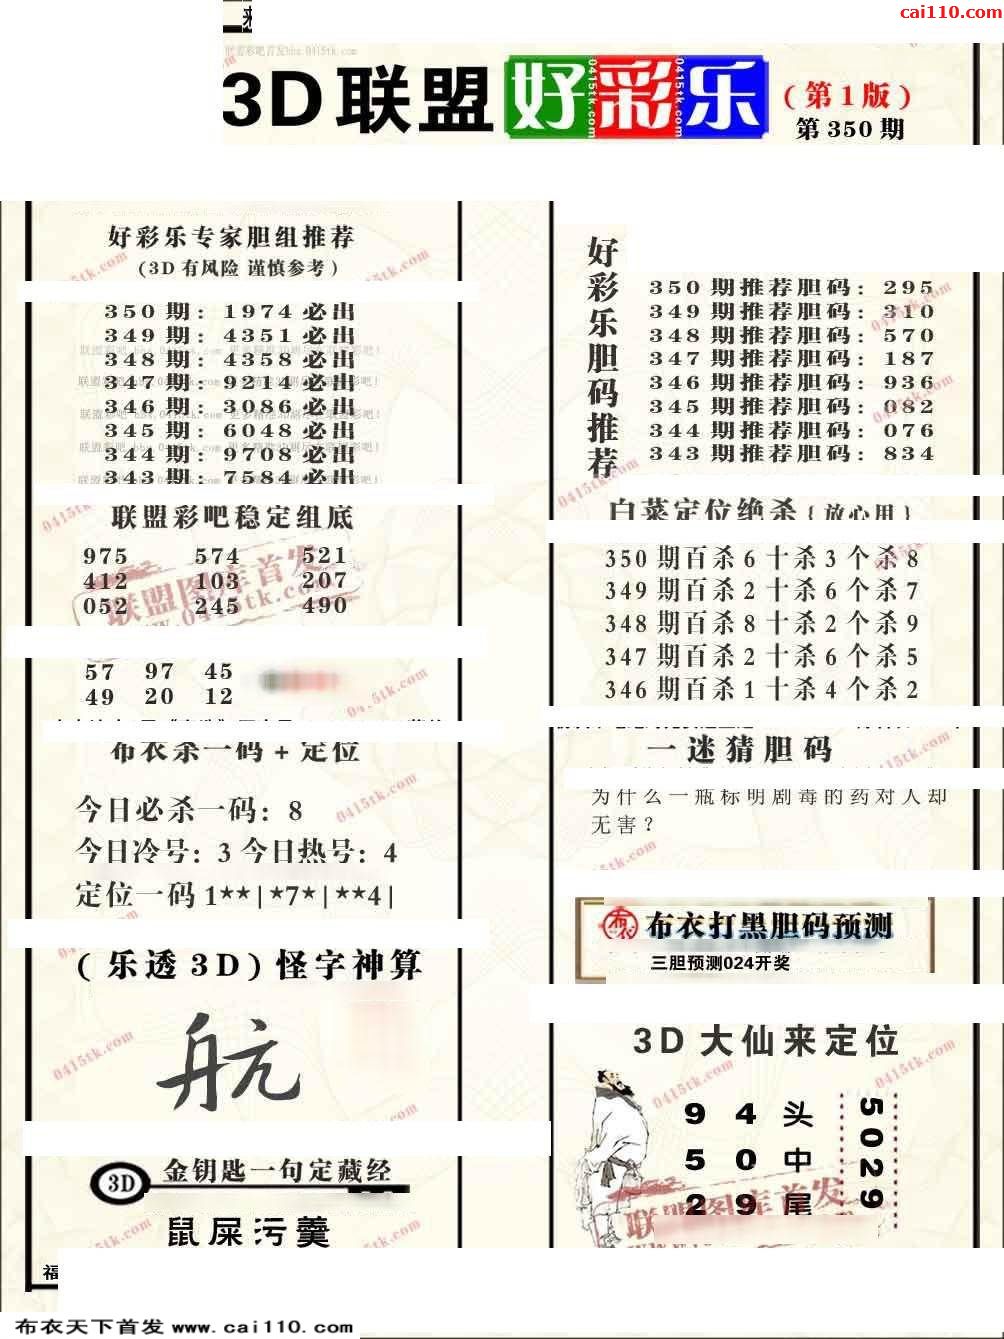 cai110.com
3D联盟好彩乐
(第1版)
第350期
好彩乐专家胆组推荐
(3D有风险 谨慎参考)
350期: 1974必出
349期: 4351必出
348期: 4358必出
347期: 9214必出
346期: 3086必出
345期: 6048必出
344期: 9708必出
343期: 7584必出
联盟彩吧稳定组底
975 574 521
412 103 207
052 245 490
57 97 45
49 20 12
布衣杀一码+定位
今日必杀一码: 8
今日冷号: 3 今日热号: 4
定位一码1**|*7*|**4|
(乐透3D)怪字神算
航
3D 金钥匙一句定藏经
鼠屎污羹
福
好彩乐胆码推荐
350期推荐胆码: 295
349期推荐胆码: 310
348期推荐胆码: 570
347期推荐胆码: 187
346期推荐胆码: 936
345期推荐胆码: 082
344期推荐胆码: 076
343期推荐胆码: 834
白菜定位绝杀{放心用}
350期百杀6十杀3个杀8
349期百杀2十杀6个杀7
348期百杀8十杀2个杀9
347期百杀2十杀6个杀5
346期百杀1十杀4个杀2
一迷猜胆码
为什么一瓶标明剧毒的药对人却
无害?
布衣打黑胆码预测
三胆预测024开奖
3D大仙来定位
9 4 头
5 0 中
2 9 尾
5029
布衣天下首发 www.cai110.com